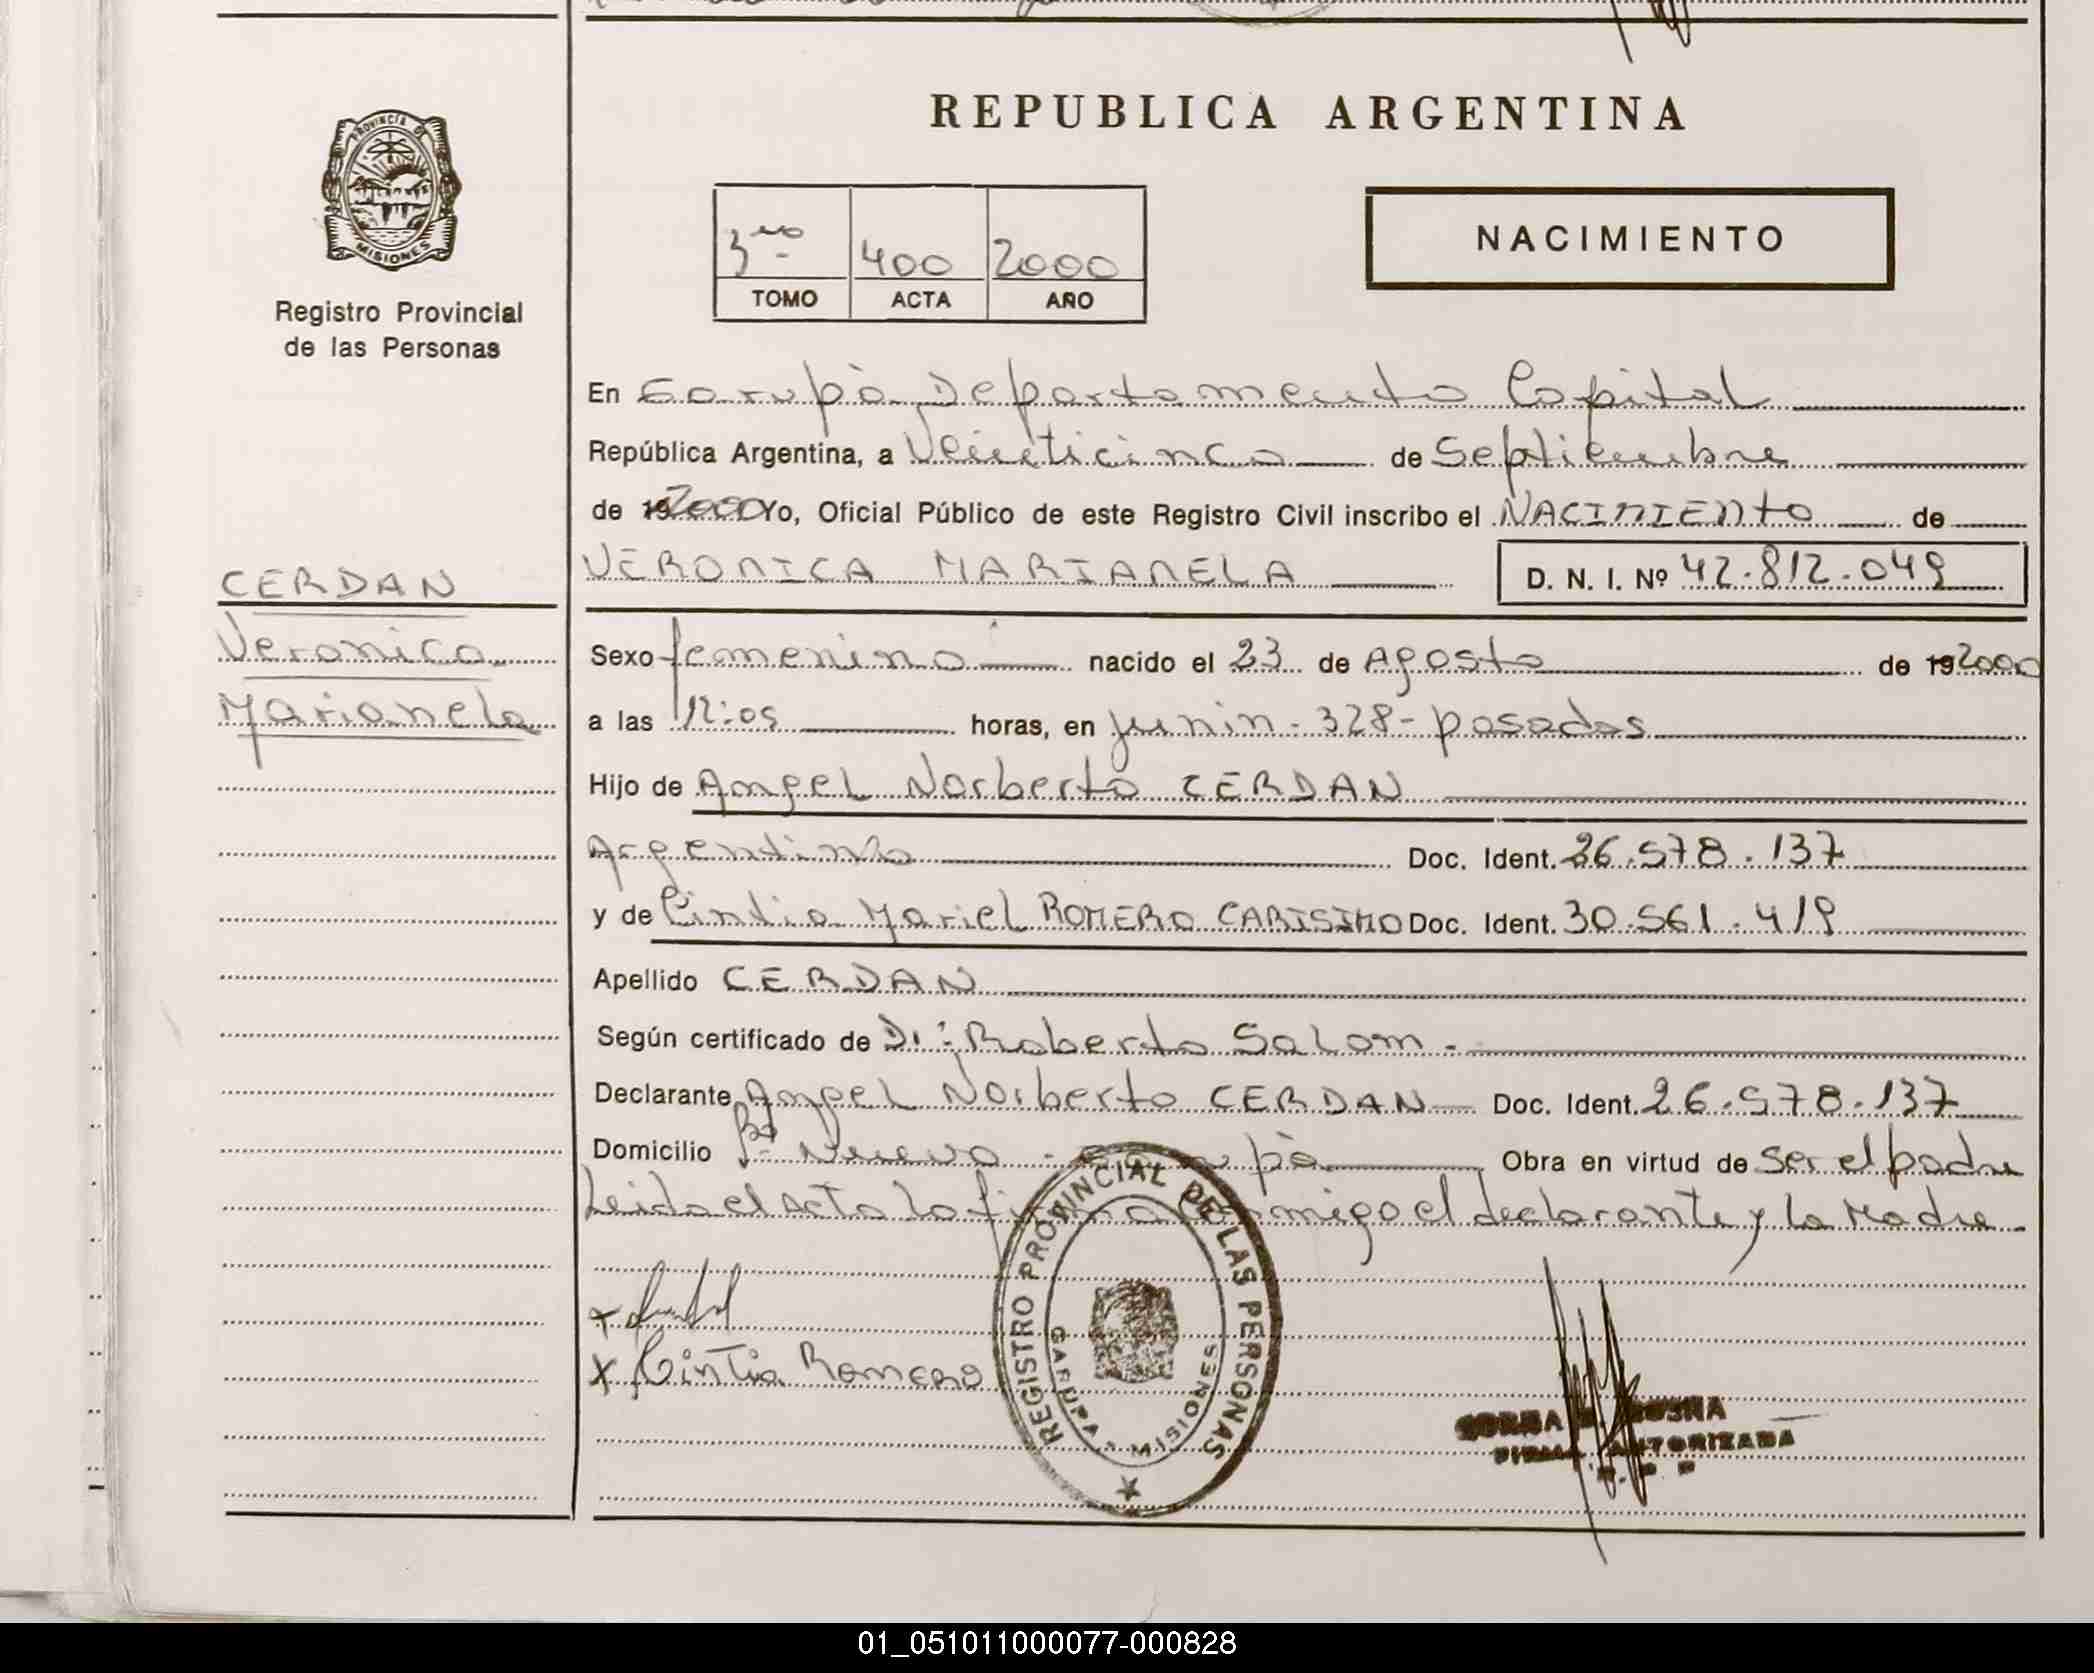 REPUBLICA ARGENTINA
PROVINCIA DE
MISIONES
Registro Provincial
de las Personas
3ro 400 2000
TOMO ACTA AÑO
NACIMIENTO
En Garupà Departamento Capital
República Argentina, a Veinticinco de Septiembre
de 192000 Yo, Oficial Público de este Registro Civil inscribo el NACIMIENTO de
VERONICA MARIANELA D. N. I. Nº 42.812.049
CERDAN
Veronica
Marianela
Sexo femenino nacido el 23 de Agosto de 192000
a las 12:05 horas, en Junin - 328 - posadas
Hijo de Angel Norberto CERDAN
Argentino Doc. Ident. 26.578.137
y de Cintia Mariel ROMERO CARISIMO Doc. Ident. 30.561.419
Apellido CERDAN
Según certificado de Dr: Roberto Salom.
Declarante Angel Norberto CERDAN Doc. Ident. 26.578.137
Domicilio Bº Nuevo - Garupà Obra en virtud de ser el padre
Leida el acta la firma conmigo el declarante y la Madre
x Cintia Romero
REGISTRO PROVINCIAL DE LAS PERSONAS
GARUPA - MISIONES
FIRMA AUTORIZADA
01_051011000077-000828